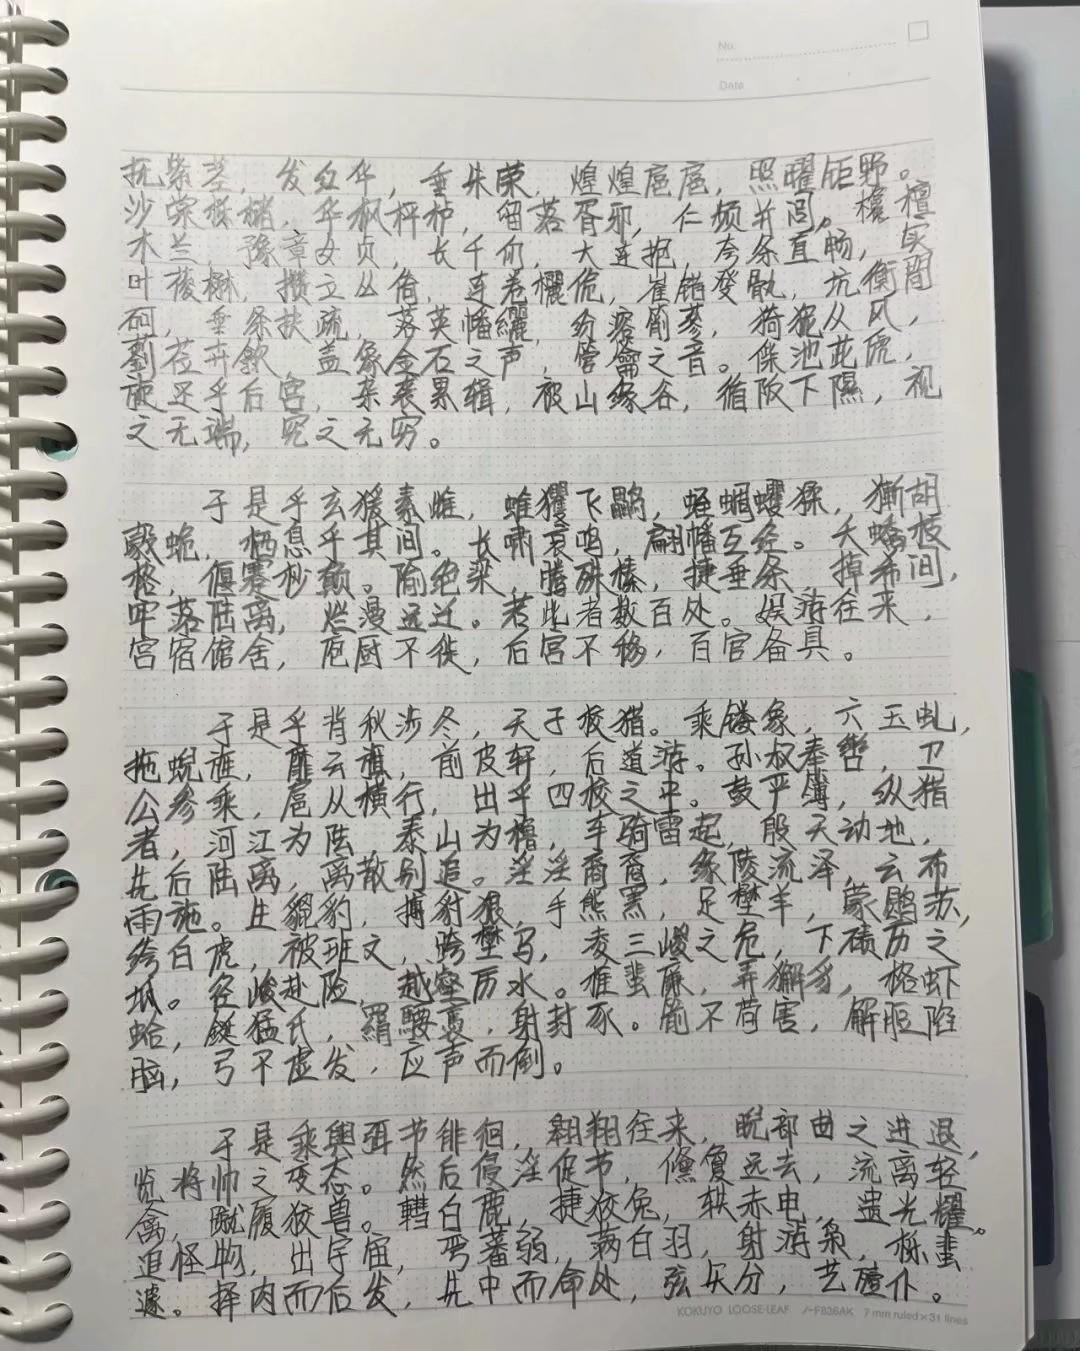 No.
Date
扤紫茎，发红华，垂朱荣，煌煌扈扈，照曜钜野。
沙棠栎槠，华枫枰栌，留落胥邪，仁频并闾，欃檀
木兰，豫章女贞，长千仞，大连抱，夸条直畅，实
叶葰楙，攒立丛倚，连卷欐佹，崔错癹骫，坑衡閜
砢，垂条扶疏，落英幡纚，纷溶萷蔘，猗狔从风，
藰莅卉歙，盖象金石之声，管龠之音。偨池茈虒，
旋还乎后宫，杂袭累辑，被山缘谷，循阪下隰，视
之无端，究之无穷。
于是乎玄猨素雌，蜼玃飞鸓，蛭蜩蠼猱，獑胡
豰蛫，栖息乎其间。长啸哀鸣，翩幡互经。夭蟜枝
格，偃蹇杪颠。隃绝梁，腾殊榛，捷垂条，掉希间，
牢落陆离，烂漫远迁。若此者数百处。娱游往来，
宫宿馆舍，庖厨不徙，后宫不移，百官备具。
于是乎背秋涉冬，天子校猎。乘镂象，六玉虬，
拖蜺旌，靡云旗，前皮轩，后道游。孙叔奉辔，卫
公参乘，扈从横行，出乎四校之中。鼓严簿，纵猎
者，河江为阹，泰山为橹，车骑雷起，殷天动地，
先后陆离，离散别追。淫淫裔裔，缘陵流泽，云布
雨施。生貔豹，搏豺狼，手熊罴，足壄羊，蒙鹖苏，
绔白虎，被班文，跨壄马，凌三嵕之危，下碛历之
坻。径峻赴险，越壑厉水。椎蜚廉，弄獬豸，格虾
蛤，鋋猛氏，羂騕褭，射封豕。箭不苟害，解脰陷
脑，弓不虚发，应声而倒。
于是乘舆弭节徘徊，翱翔往来，睨部曲之进退，
览将帅之变态。然后侵淫促节，儵夐远去，流离轻
禽，蹴履狡兽。轊白鹿，捷狡兔，轶赤电，遗光耀。
追怪物，出宇宙，弯蕃弱，满白羽，射游枭，栎蜚
遽。择肉而后发，先中而命处，弦矢分，艺殪仆。
KOKUYO LOOSE-LEAF ノ-F836AK 7 mm ruled×31 lines